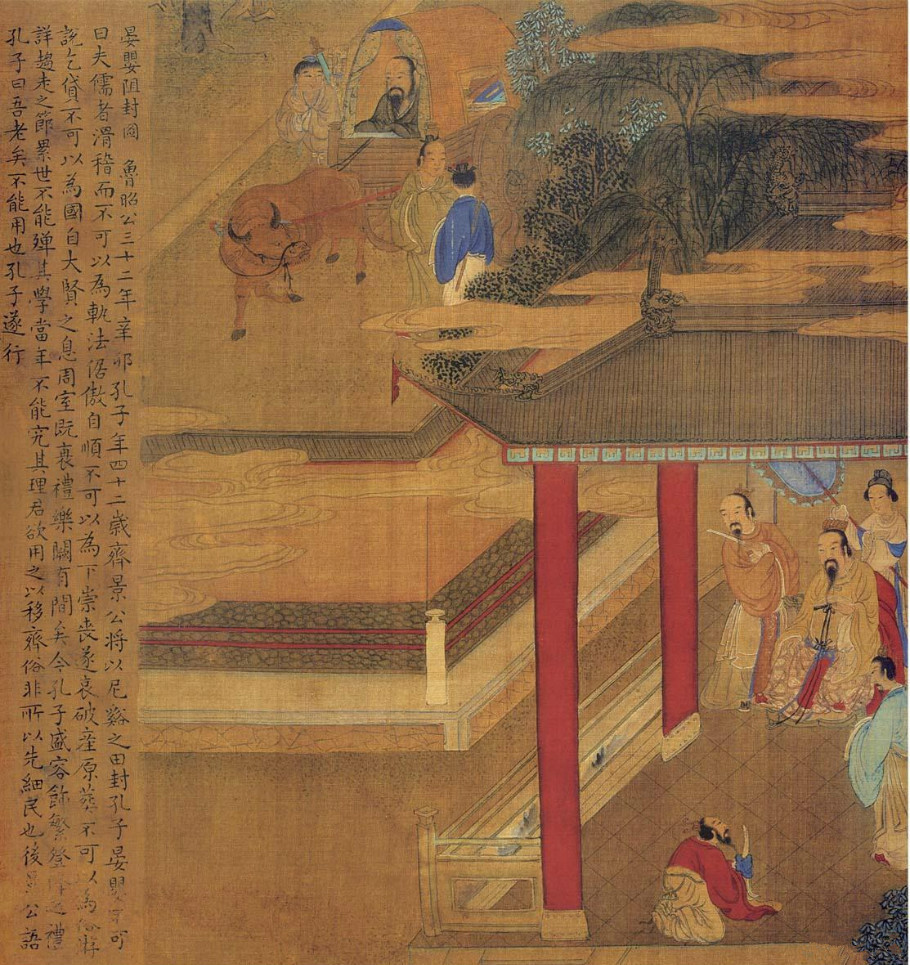 晏嬰阻封圖　魯昭公三十二年辛卯孔子年四十二嵗齊景公将以尼谿之田封孔子晏嬰可
曰夫儒者滑稽而不可以為軌法倨傲自順不可以為下崇喪遂哀破産原葬不可以為俗游
說乞貸不可以為國自大賢之息周室既衰禮樂闕有間矣今孔子盛容飾繁登降之禮
詳趨走之節累世不能殫其學當年不能究其理君欲用之以移齊俗非所以先細民也後景公語
孔子曰吾老矣不能用也孔子遂行